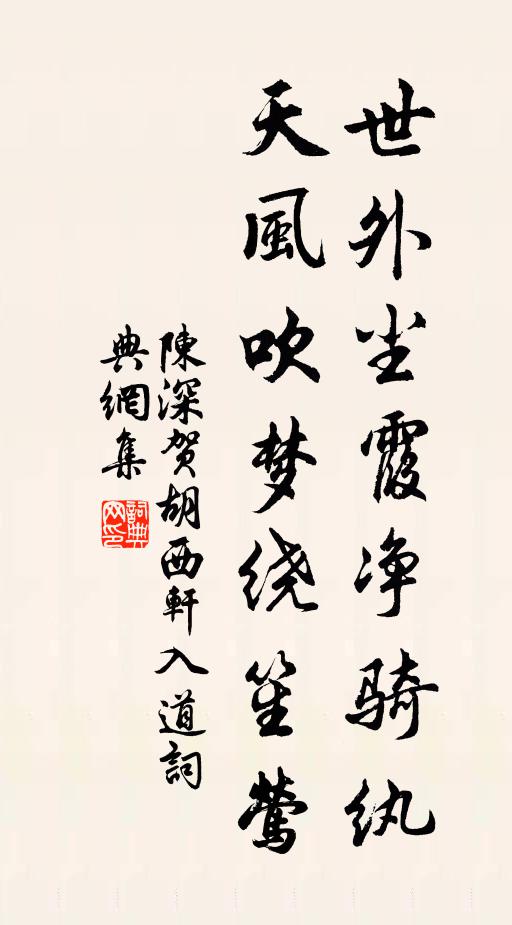 世外尘霞净骑纨
天風吹梦绕笙莺
陳深贺胡西軒入道詞
典網集
詞典
网印